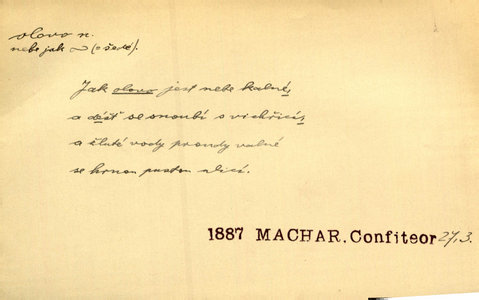 olovo n.
nebe jak ~ (o šeré).
Jak olovo jest nebe kalné,
a déšť se snoubí s vichřicí,
a žluté vody proudy valné
se hrnou pustou ulicí.
1887 MACHAR. Confiteor 27,3.